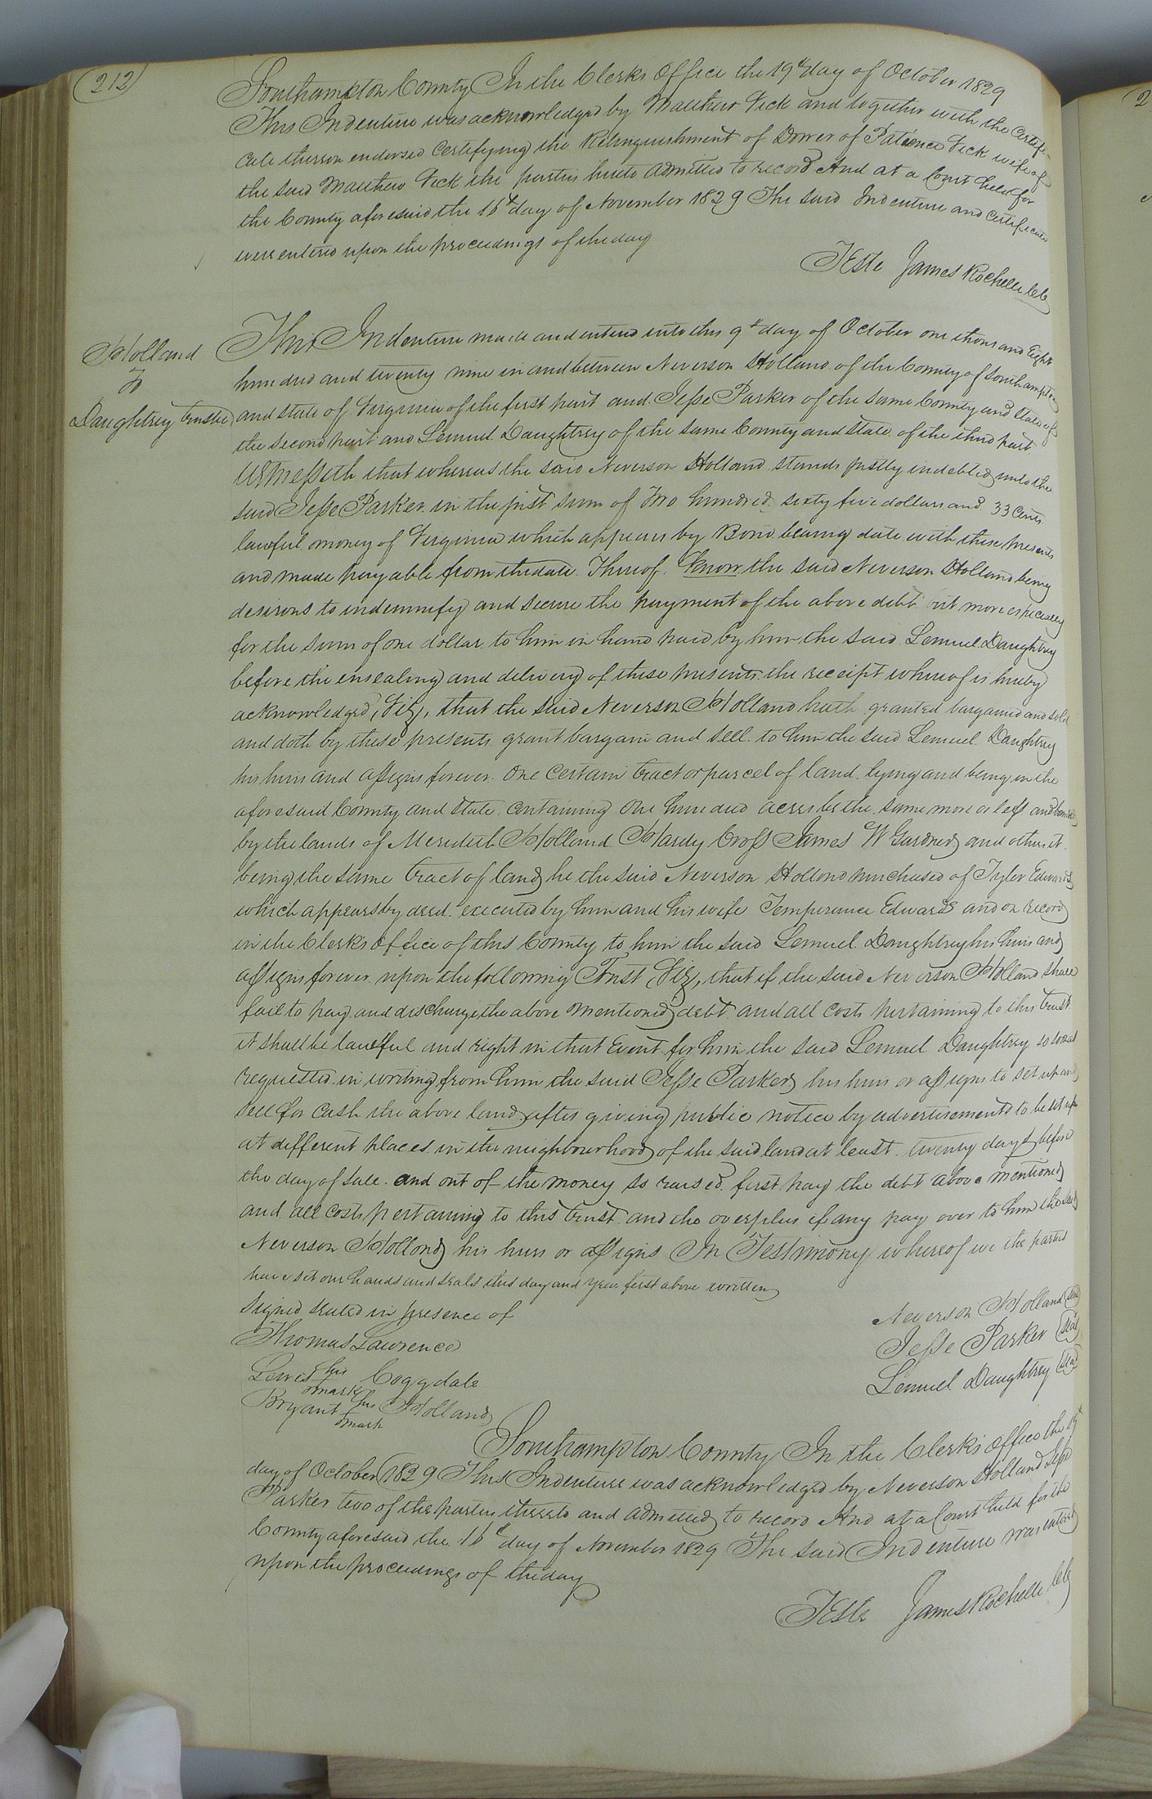 212
Southampton County In the Clerks Office the 19th day of October 1829
This Indenture was acknowledged by Matthew Vick and together with the Certifi-
cate thereon endorsed Certifying the Relinquishment of Dower of Patience Vick wife of
the said Matthew Vick the parties hereto admitted to record And at a Court held for
the County aforesaid the 16th day of November 1829 The said Indenture and Certificate
were entered upon the proceedings of the day
Teste James Rochelle Clk
Holland
To
Daughtrey Trustee
This Indenture made and entered into this 9th day of October one thousand Eight
hundred and twenty nine in and between Neverson Holland of the County of Southampton
and state of Virginia of the first part and Jesse Parker of the same County and State of
the second part and Lemuel Daughtrey of the same County and state of the third part
Witnesseth that whereas the said Neverson Holland stands justly indebted unto the
said Jesse Parker in the just sum of Two hundred sixty five dollars and 33 Cents
lawful money of Virginia which appears by Bond bearing date with these presents
and made payable from the date Thereof. Know the said Neverson Holland being
desirous to indemnify and secure the payment of the above debt more especially
for the sum of one dollar to him in hand paid by him the said Lemuel Daughtrey
before the ensealing and delivery of these presents the receipt whereof is hereby
acknowledged, Viz, that the said Neverson Holland hath granted bargained and sold
and doth by these presents grant bargain and sell to him the said Lemuel Daughtrey
his heirs and assigns forever One Certain tract or parcel of land lying and being in the
aforesaid County and State Containing One hundred acres be the same more or less and bound
by the lands of Meredith Holland Hardy Cross James W Gardner and others it
being the same tract of land he the said Neverson Holland purchased of Tyler Edwards
which appears by deed executed by him and his wife Temperance Edwards and on record
in the Clerks office of this County to him the said Lemuel Daughtrey his heirs and
assigns forever upon the following Trust Viz, that if the said Neverson Holland shall
fail to pay and discharge the above mentioned debt and all costs pertaining to this trust
it shall be lawful and right in that Event for him the said Lemuel Daughtrey so soon as
requested in writing from him the said Jesse Parker his heirs or assigns to set up and
sell for cash the above land after giving public notice by advertisements to be set up
at different places in the neighbourhood of the said land at least twenty days before
the day of sale and out of the money so raised first pay the debt above mentioned
and all costs pertaining to this trust and the overplus if any pay over to him the said
Neverson Holland his heirs or assigns In Testimony whereof we the parties
have set our hands and seals this day and year first above written
Signed sealed in presence of
Neverson Holland Seal
Thomas Lawrence
Jesse Parker Seal
Lewis his mark Coggdale
Lemuel Daughtrey Seal
Bryant his mark Holland
Southampton County In the Clerk's office the 19th
day of October 1829 This Indenture was acknowledged by Neverson Holland Jesse
Parker two of the parties thereto and admitted to record And at a Court held for the
County aforesaid the 16th day of November 1829 The said Indenture was entered
upon the proceedings of the day
Teste James Rochelle Clk